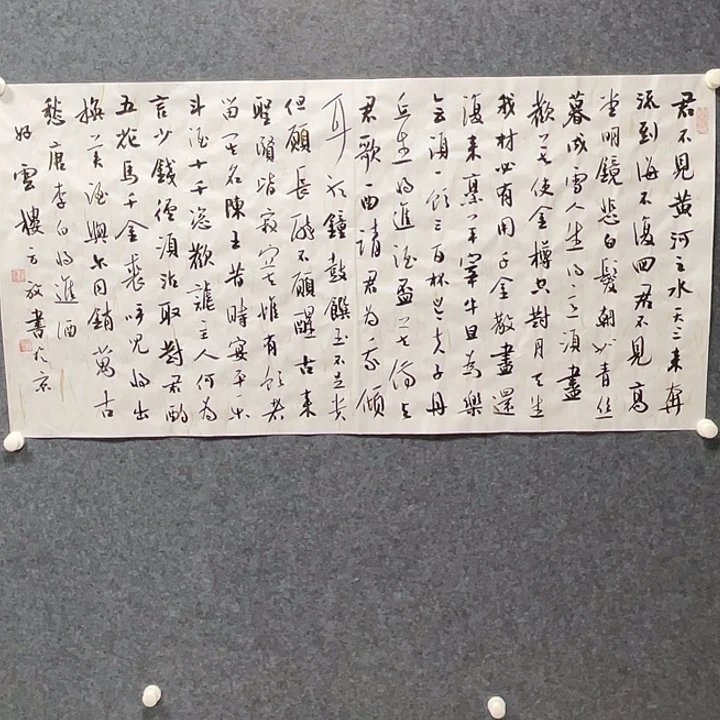 君不見黄河之水天上来奔
流到海不復回君不見高
堂明鏡悲白髮朝如青丝
暮成雪人生得意須盡
歡莫使金樽空對月天生
我材必有用千金散盡還
復来烹羊宰牛且為樂
会須一飲三百杯岑夫子丹
丘生将進酒盃莫停与
君歌一曲請君為我傾
耳听鐘鼓饌玉不足貴
但願長醉不願醒古来
聖賢皆寂寞惟有飲者
留其名陳王昔時宴平乐
斗酒十千恣歡謔主人何為
言少錢徑須沽取對君酌
五花馬千金裘呼兒将出
換美酒與尔同銷萬古
愁唐李白将進酒
好雲樓方放書於京